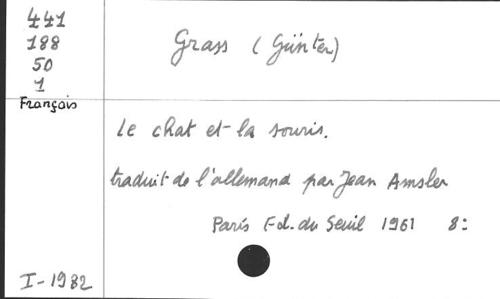 441
188
50
1
Français
Grass (Günter)
Le chat et la souris.
traduit de l'allemand par Jean Amsler
Paris Ed. du Seuil 1961 8:
I-1982